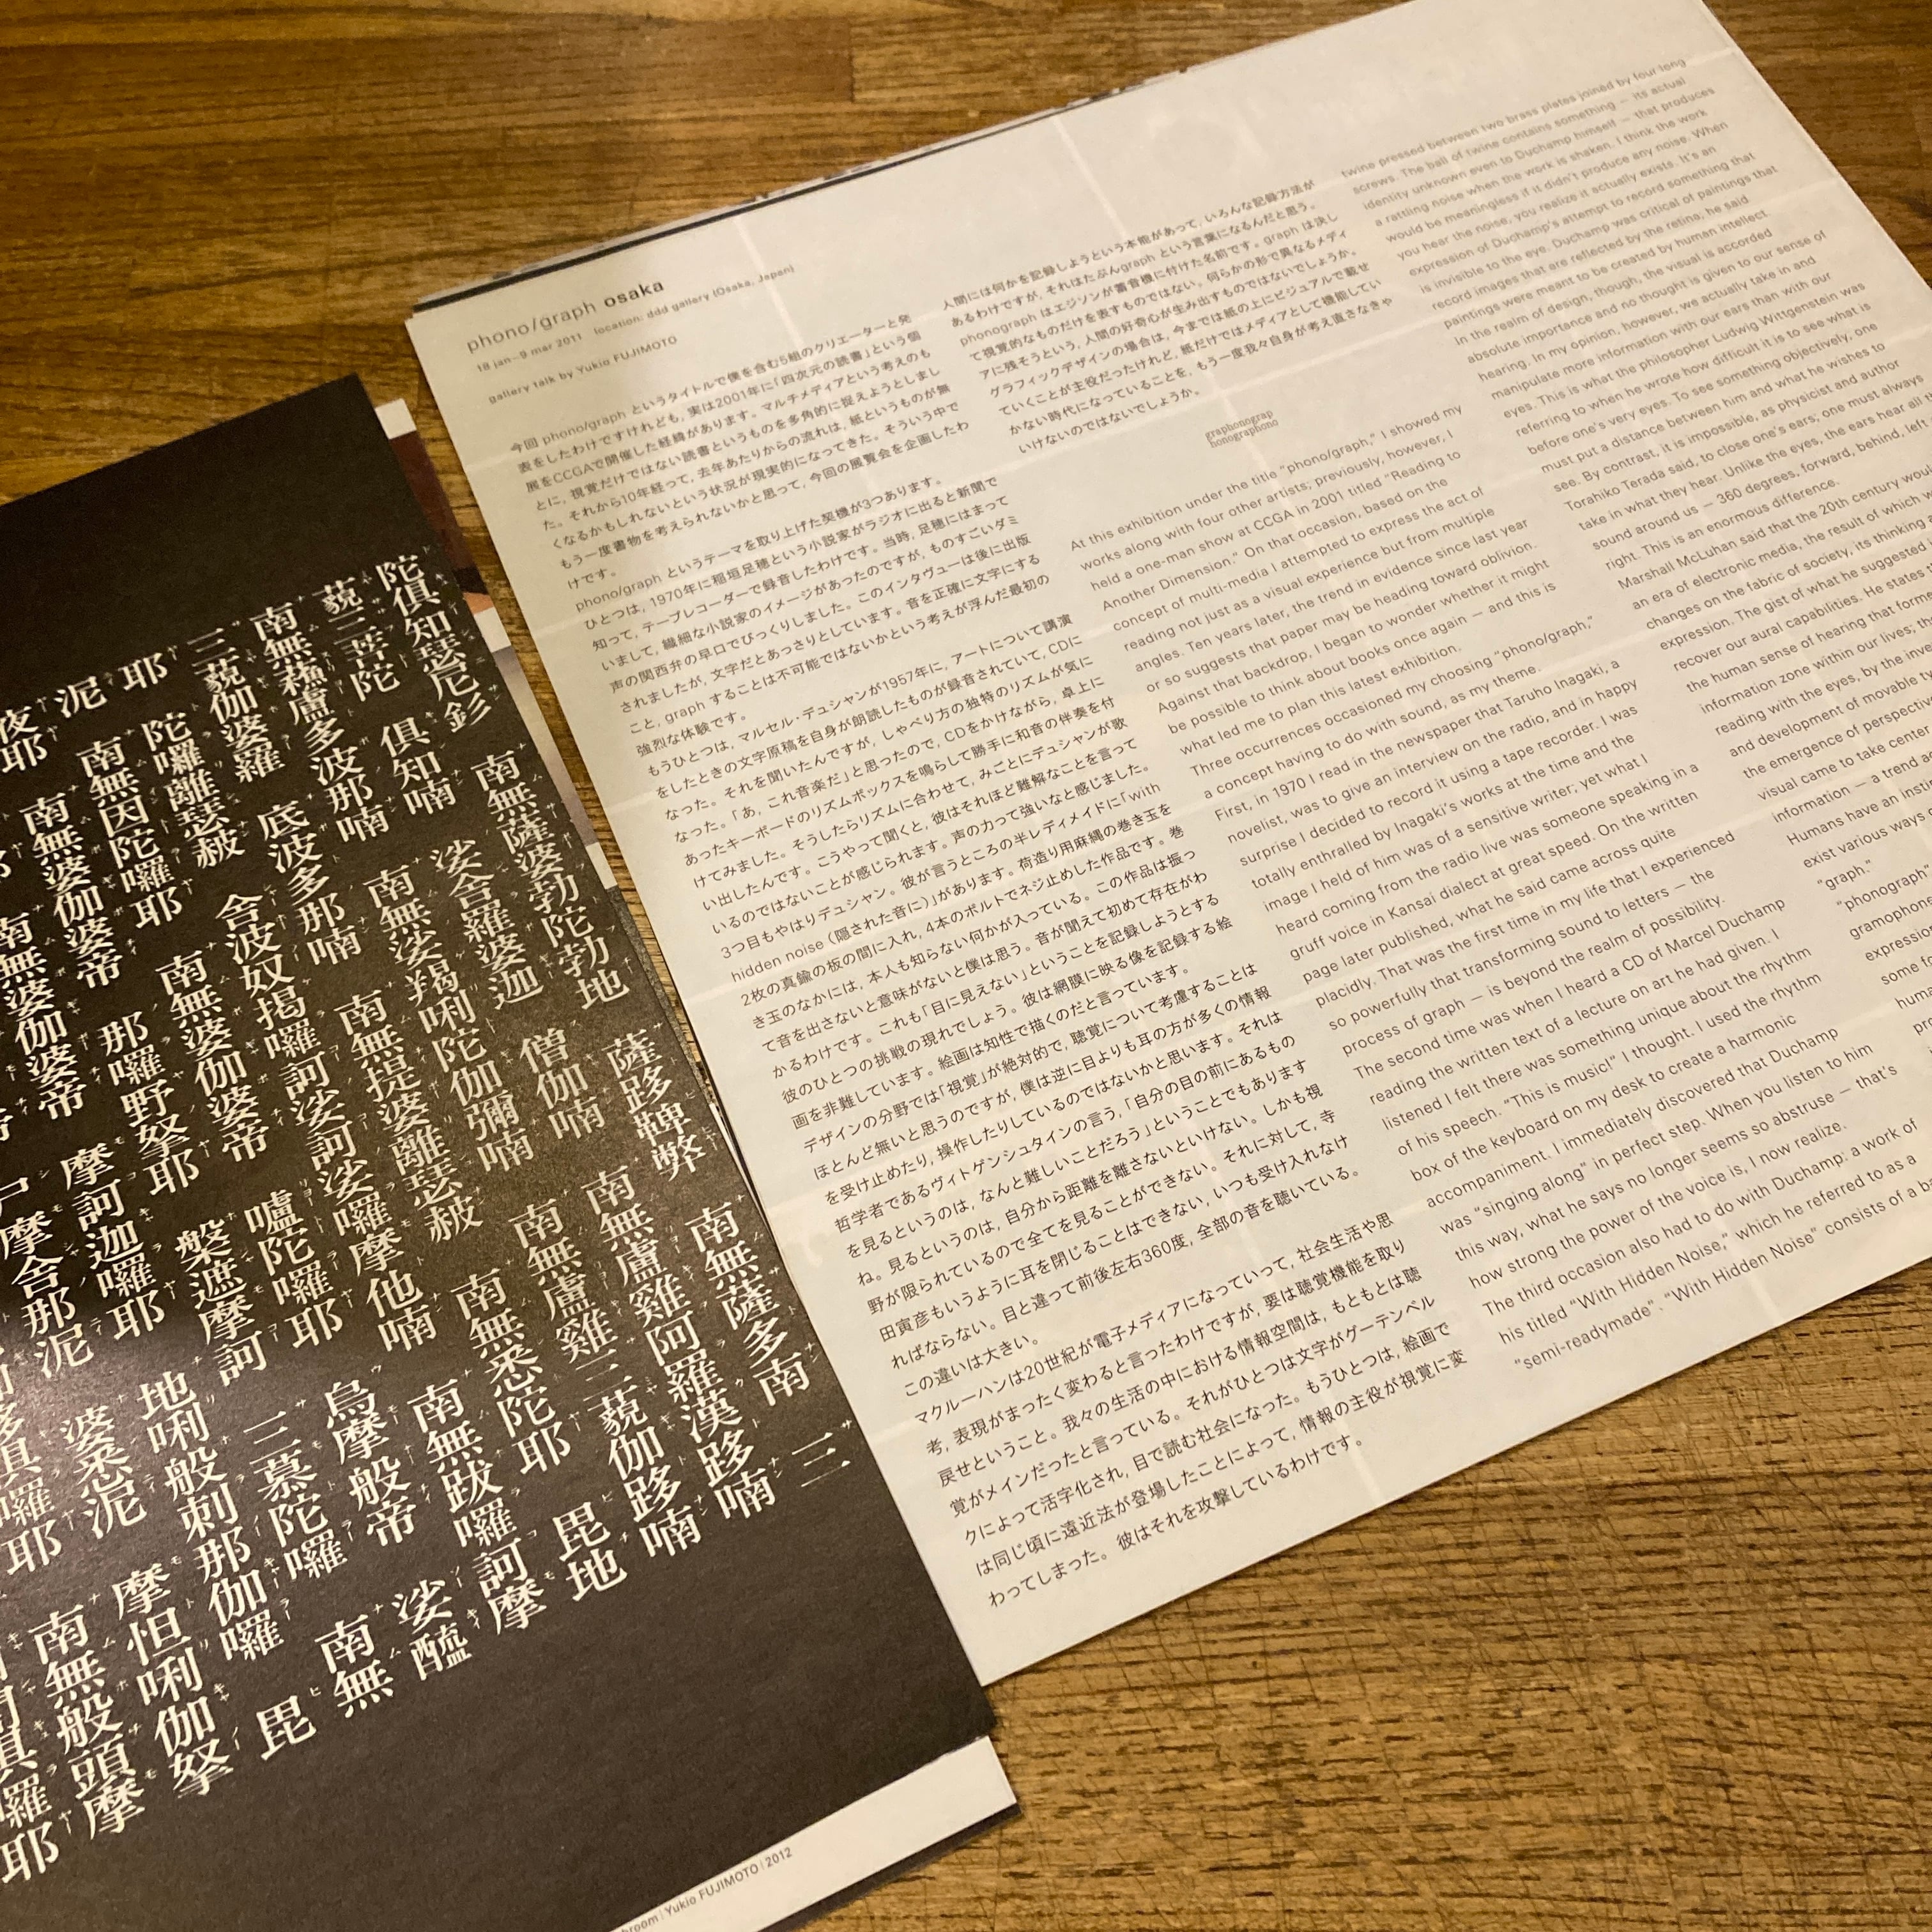 phono/graph osaka
18 jan–9 mar 2011 location: ddd gallery (Osaka, Japan)
gallery talk by Yukio FUJIMOTO
今回 phono/graph というタイトルで僕を含む5組のクリエーターと発
表をしたわけですけれども, 実は2001年に「四次元の読書」という個
展をCCGAで開催した経緯があります。マルチメディアという考えのも
とに, 視覚だけではない読書というものを多角的に捉えようとしまし
た。それから10年経って, 去年あたりからの流れは, 紙というものが無
くなるかもしれないという状況が現実的になってきた。そういう中で
もう一度書物を考えられないかと思って, 今回の展覧会を企画したわ
けです。
phono/graph というテーマを取り上げた契機が3つあります。
ひとつは, 1970年に稲垣足穂という小説家がラジオに出ると新聞で
知って, テープレコーダーで録音したわけです。当時, 足穂にはまって
いまして, 繊細な小説家のイメージがあったのですが, ものすごいダミ
声の関西弁の早口でびっくりしました。このインタヴューは後に出版
されましたが, 文字だとあっさりとしています。音を正確に文字にする
こと, graph することは不可能ではないかという考えが浮んだ最初の
強烈な体験です。
もうひとつは, マルセル・デュシャンが1957年に, アートについて講演
をしたときの文字原稿を自身が朗読したものが録音されていて, CDに
なった。それを聞いたんですが, しゃべり方の独特のリズムが気に
なった。「あ, これ音楽だ」と思ったので, CDをかけながら, 卓上に
あったキーボードのリズムボックスを鳴らして勝手に和音の伴奏を付
けてみました。そうしたらリズムに合わせて, みごとにデュシャンが歌
い出したんです。こうやって聞くと, 彼はそれほど難解なことを言って
いるのではないことが感じられます。声の力って強いなと感じました。
3つ目もやはりデュシャン。彼が言うところの半レディメイドに「with
hidden noise（隠された音に）」があります。荷造り用麻縄の巻き玉を
2枚の真鍮の板の間に入れ, 4本のボルトでネジ止めした作品です。巻
き玉のなかには, 本人も知らない何かが入っている。この作品は振っ
て音を出さないと意味がないと僕は思う。音が聞えて初めて存在がわ
かるわけです。これも「目に見えない」ということを記録しようとする
彼のひとつの挑戦の現れでしょう。彼は網膜に映る像を記録する絵
画を非難しています。絵画は知性で描くのだと言っています。
デザインの分野では「視覚」が絶対的で, 聴覚について考慮することは
ほとんど無いと思うのですが, 僕は逆に目よりも耳の方が多くの情報
を受け止めたり, 操作したりしているのではないかと思います。それは
哲学者であるヴィトゲンシュタインの言う, 「自分の目の前にあるもの
を見るというのは, なんと難しいことだろう」ということでもあります
ね。見るというのは, 自分から距離を離さないといけない。しかも視
野が限られているので全てを見ることができない。それに対して, 寺
田寅彦もいうように耳を閉じることはできない, いつも受け入れなけ
ればならない。目と違って前後左右360度, 全部の音を聴いている。
この違いは大きい。
マクルーハンは20世紀が電子メディアになっていって, 社会生活や思
考, 表現がまったく変わると言ったわけですが, 要は聴覚機能を取り
戻せということ。我々の生活の中における情報空間は, もともとは聴
覚がメインだったと言っている。それがひとつは文字がグーテンベル
クによって活字化され, 目で読む社会になった。もうひとつは, 絵画で
は同じ頃に遠近法が登場したことによって, 情報の主役が視覚に変
わってしまった。彼はそれを攻撃しているわけです。
人間には何かを記録しようという本能があって, いろんな記録方法が
あるわけですが, それはたぶんgraph という言葉になるんだと思う。
phonograph はエジソンが蓄音機に付けた名前です。graph は決し
て視覚的なものだけを表すものではない。何らかの形で異なるメディ
アに残そうという, 人間の好奇心が生み出すものではないでしょうか。
グラフィックデザインの場合は, 今までは紙の上にビジュアルで載せ
ていくことが主役だったけれど, 紙だけではメディアとして機能してい
かない時代になっていることを, もう一度我々自身が考え直さなきゃ
いけないのではないでしょうか。
graphonograp
honographono
At this exhibition under the title “phono/graph,” I showed my
works along with four other artists; previously, however, I
held a one-man show at CCGA in 2001 titled “Reading to
Another Dimension.” On that occasion, based on the
concept of multi-media I attempted to express the act of
reading not just as a visual experience but from multiple
angles. Ten years later, the trend in evidence since last year
or so suggests that paper may be heading toward oblivion.
Against that backdrop, I began to wonder whether it might
be possible to think about books once again — and this is
what led me to plan this latest exhibition.
Three occurrences occasioned my choosing “phono/graph,”
a concept having to do with sound, as my theme.
First, in 1970 I read in the newspaper that Taruho Inagaki, a
novelist, was to give an interview on the radio, and in happy
surprise I decided to record it using a tape recorder. I was
totally enthralled by Inagaki's works at the time and the
image I held of him was of a sensitive writer; yet what I
heard coming from the radio live was someone speaking in a
gruff voice in Kansai dialect at great speed. On the written
page later published, what he said came across quite
placidly. That was the first time in my life that I experienced
so powerfully that transforming sound to letters — the
process of graph — is beyond the realm of possibility.
The second time was when I heard a CD of Marcel Duchamp
reading the written text of a lecture on art he had given. I
listened I felt there was something unique about the rhythm
of his speech. “This is music!” I thought. I used the rhythm
box of the keyboard on my desk to create a harmonic
accompaniment. I immediately discovered that Duchamp
was “singing along” in perfect step. When you listen to him
this way, what he says no longer seems so abstruse — that's
how strong the power of the voice is, I now realize.
The third occasion also had to do with Duchamp: a work of
his titled “With Hidden Noise,” which he referred to as a
“semi-readymade”. “With Hidden Noise” consists of a
twine pressed between two brass plates joined by four long
screws. The ball of twine contains something — its actual
identity unknown even to Duchamp himself — that produces
a rattling noise when the work is shaken. I think the work
would be meaningless if it didn't produce any noise. When
you hear the noise, you realize it actually exists. It's an
expression of Duchamp's attempt to record something that
is invisible to the eye. Duchamp was critical of paintings that
record images that are reflected by the retina; he said
paintings were meant to be created by human intellect.
In the realm of design, though, the visual is accorded
absolute importance and no thought is given to our sense of
hearing. In my opinion, however, we actually take in and
manipulate more information with our ears than with our
eyes. This is what the philosopher Ludwig Wittgenstein was
referring to when he wrote how difficult it is to see what is
before one's very eyes. To see something objectively, one
must put a distance between him and what he wishes to
see. By contrast, it is impossible, as physicist and author
Torahiko Terada said, to close one's ears; one must always
take in what they hear. Unlike the eyes, the ears hear all
sound around us — 360 degrees, forward, behind, left
right. This is an enormous difference.
Marshall McLuhan said that the 20th century would
an era of electronic media, the result of which
changes on the fabric of society, its thinking
expression. The gist of what he suggested
recover our aural capabilities. He states
the human sense of hearing that
information zone within our lives;
reading with the eyes, by the
and development of movable
the emergence of perspective
visual came to take center
information — a trend
Humans have an
exist various ways
“graph.”
“phonograph”
gramophone
expression
some
陀倶知瑟尼釤 南無薩婆勃陀勃地 薩跢鞞弊 南無薩多南 三
藐三菩陀 倶知喃 娑舍羅婆迦 僧伽喃 南無盧雞阿羅漢跢喃
南無蘓盧多波那喃 南無娑羯唎陀伽彌喃 南無盧雞三藐伽跢喃
三藐伽婆羅 底波多那喃 南無提婆離瑟赧 南無悉陀耶 毘地
耶 陀囉離瑟赧 舍波奴揭囉訶娑訶娑囉摩他喃 南無跋囉訶摩
泥 南無因陀囉耶 南無婆伽婆帝 嚧陀囉耶 烏摩般帝 娑醯
夜耶 南無婆伽婆帝 那囉野拏耶 槃遮摩訶 三慕陀囉 南無
南無婆伽婆帝 摩訶迦囉耶 地唎般剌那伽囉 毘
尸摩舍那泥 婆悉泥 摩怛唎伽拏
囉耶 南無般頭摩
Yukio FUJIMOTO | 2012